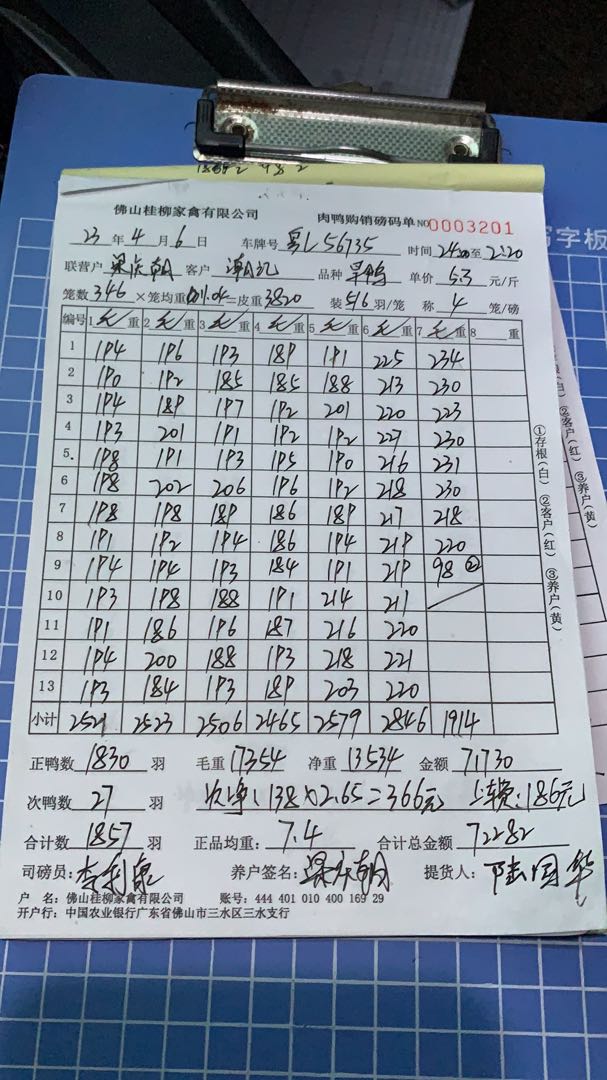 佛山桂柳家禽有限公司 肉鸭购销磅码单 NO 0003201
23 年 4 月 6 日 车牌号 粤L56735 时间 24:00 至 2:20
联营户 梁庆朝 客户 潮记 品种 旱鸭 单价 5.3 元/斤
笼数 346 ×笼均重 =皮重 3820 装 5/6 羽/笼 称 4 笼/磅
编号 1 毛 重 2 毛 重 3 毛 重 4 毛 重 5 毛 重 6 毛 重 7 毛 重 8 重
1 194 196 193 189 191 225 234
2 190 192 185 185 188 213 230
3 194 189 197 192 201 220 223
4 193 201 191 192 192 227 230
5 198 191 193 195 190 216 231
6 198 202 206 196 192 218 230
7 198 198 189 186 189 217 218
8 191 192 194 186 194 219 220
9 194 194 193 184 191 219 98 ㉒
10 193 198 188 191 214 211
11 191 186 196 187 216 220
12 194 200 188 193 218 221
13 193 184 193 189 203 220
小计 2521 2523 2506 2465 2579 2846 1914
正鸭数 1830 羽 毛重 17354 净重 13534 金额 71730
次鸭数 27 羽 次净: 138×2.65=366元 上车费: 186元
合计数 1857 羽 正品均重: 7.4 合计总金额 72282
司磅员: 李利泉 养户签名: 梁庆朝 提货人: 陆国华
户 名: 佛山桂柳家禽有限公司 账号: 444 401 010 400 169 29
开户行: 中国农业银行广东省佛山市三水区三水支行
①存根(白) ②客户(红) ③养户(黄)
②客户(红) ③养户(黄)
写字板